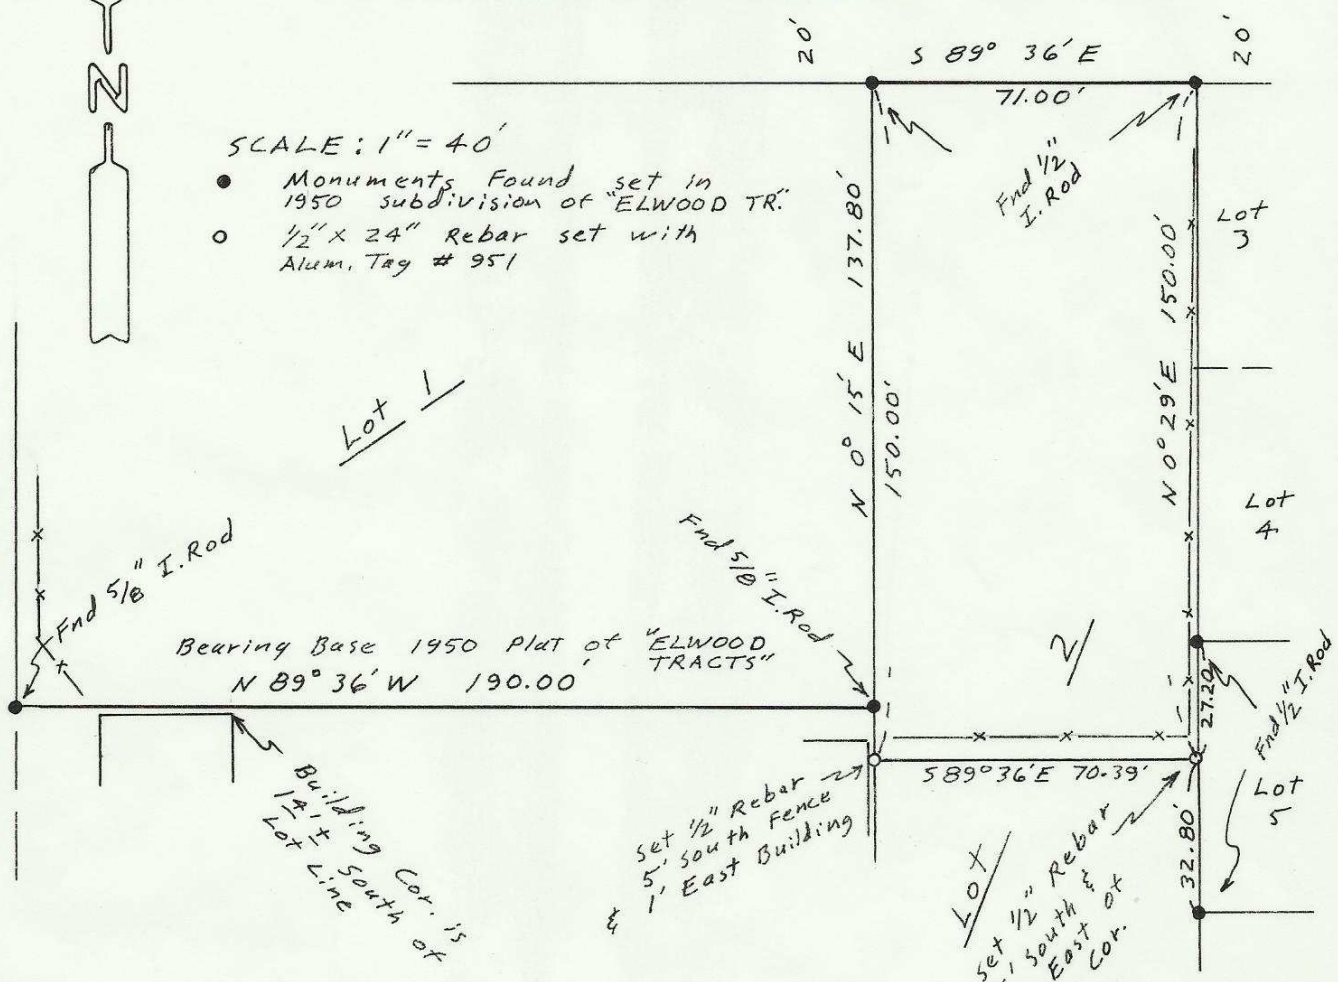 N
SCALE: 1" = 40'
Monuments Found set in
1950 subdivision of "ELWOOD TR."
1/2" X 24" Rebar set with
Alum. Tag # 951
20'
S 89° 36' E
71.00'
20'
Fnd 1/2"
I. Rod
N 0° 15' E 137.80'
150.00'
N 0° 29' E 150.00'
Lot
3
Lot
4
Lot 1
Fnd 5/8" I. Rod
Fnd 5/8" I. Rod
Bearing Base 1950 Plat of "ELWOOD
TRACTS"
N 89° 36' W 190.00'
2
27.20
Fnd 1/2" I. Rod
Lot
5
32.80'
S 89° 36' E 70.39'
Building Cor. is
14' ± South of
Lot Line
Set 1/2" Rebar
5' South Fence
& 1' East Building
LOT
Set 1/2" Rebar
' South &
East of
Cor.